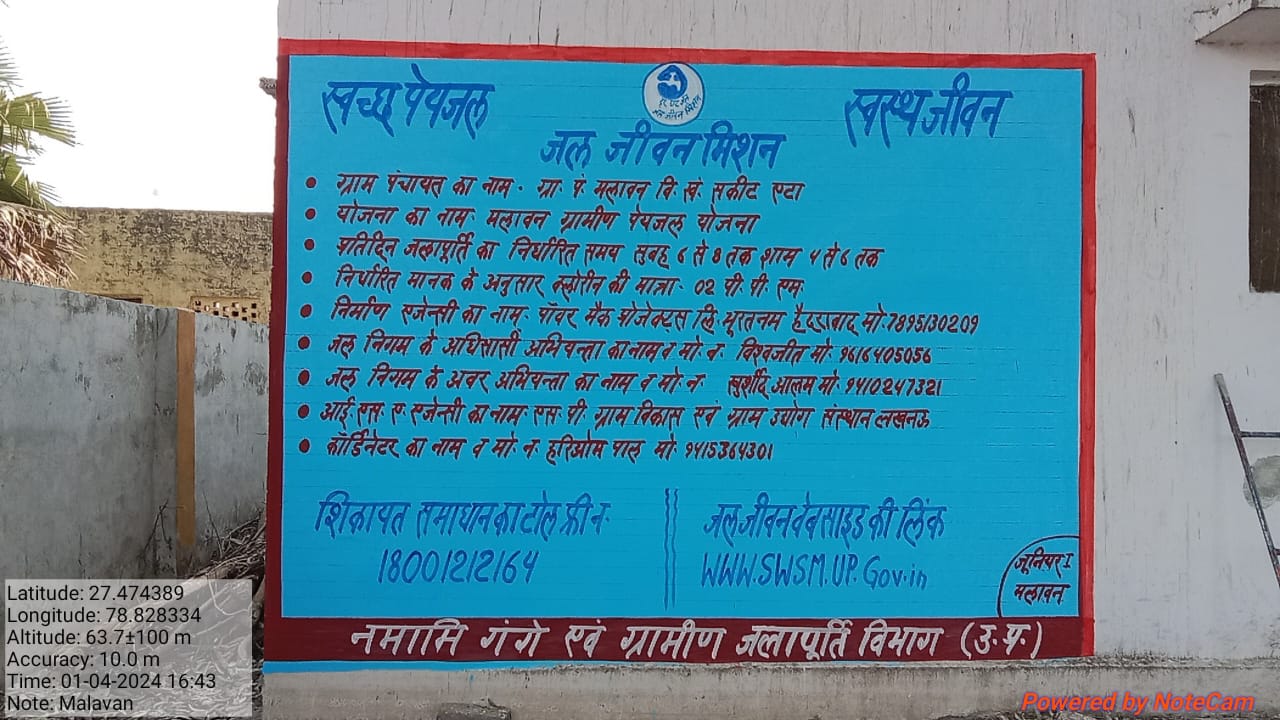 स्वच्छ पेयजल
हर घर जल
जल जीवन मिशन
स्वस्थ जीवन
जल जीवन मिशन
• ग्राम पंचायत का नाम - ग्रा. पं. मलावन वि. खं. सकीट एटा
• योजना का नाम- मलावन ग्रामीण पेयजल योजना
• प्रतिदिन जलापूर्ति का निर्धारित समय सुबह 6 से 8 तक शाम 4 से 6 तक
• निर्धारित मानक के अनुसार क्लोरीन की मात्रा - 02 पी. पी. एम.
• निर्माण एजेन्सी का नाम- पॉवर मैक प्रोजेक्टस लि. भूरतनम हैदराबाद मो. 7895130209
• जल निगम के अधिसासी अभियन्ता का नाम व मो. न. विश्वजीत मो. 9616405056
• जल निगम के अवर अभियन्ता का नाम व मो. न. खुर्शीद आलम मो. 9410247321
• आई. एस. ए. एजेन्सी का नाम- एस. पी. ग्राम विकास एवं ग्राम उयोग संस्थान लखनऊ
• कॉर्डिनेटर का नाम व मो. न. हरिओम पाल मो. 9415364301
शिकायत समाधान का टोल फ्री न.
18001212164
जल जीवन वेबसाइड की लिंक
WWW.SWSM.UP.Gov.in
जूनियर I
मलावन
नमामि गंगे एवं ग्रामीण जलापूर्ति विभाग (उ. प्र.)
Latitude: 27.474389
Longitude: 78.828334
Altitude: 63.7±100 m
Accuracy: 10.0 m
Time: 01-04-2024 16:43
Note: Malavan
Powered by NoteCam